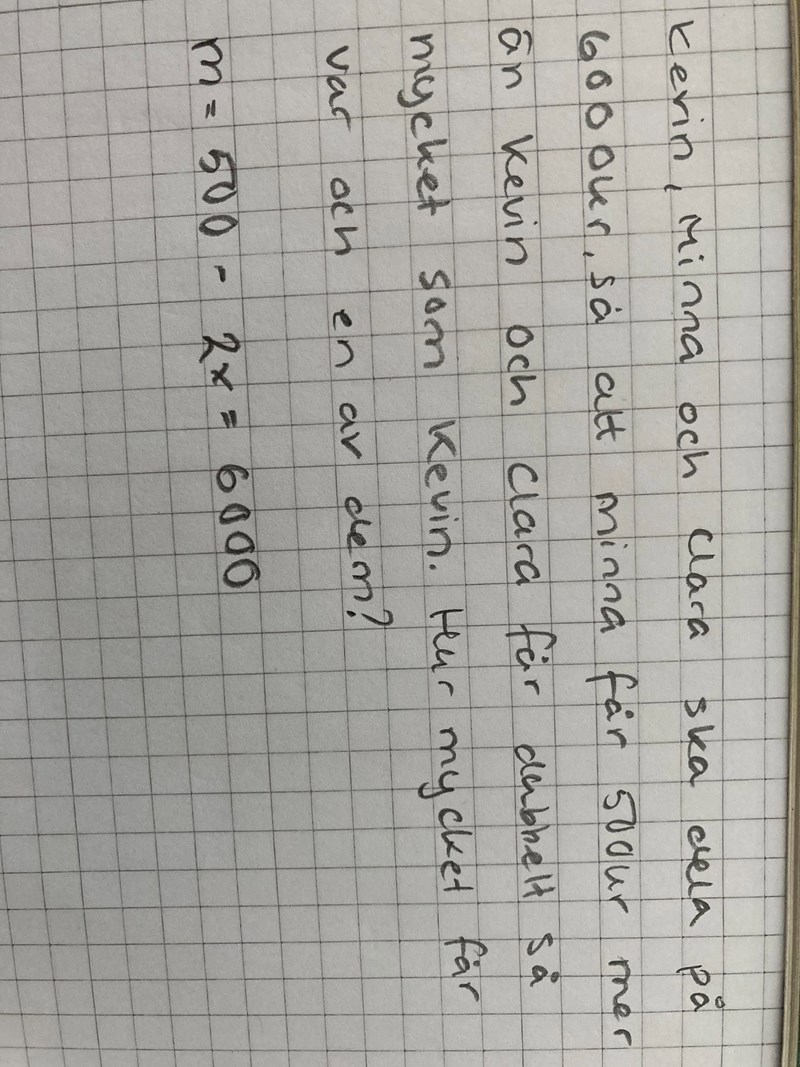 Kevin, Minna och Clara ska dela på
6000kr, så att minna får 500kr mer
än Kevin och Clara får dubbelt så
mycket som Kevin. Hur mycket får
var och en av dem?
m = 500 - 2x = 6000